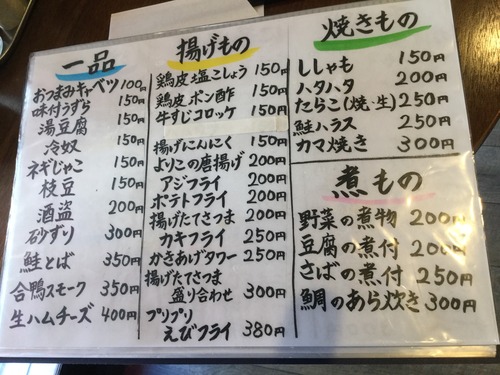 一品
おつまみキャベツ 100円
味付うずら 150円
湯豆腐 150円
冷奴 150円
ネギじゃこ 150円
枝豆 150円
酒盗 200円
砂ずり 300円
鮭とば 350円
合鴨スモーク 350円
生ハムチーズ 400円
揚げもの
鶏皮塩こしょう 150円
鶏皮ポン酢 150円
牛すじコロッケ 150円
揚げにんにく 150円
よりこの唐揚げ 200円
アジフライ 200円
ポテトフライ 200円
揚げたてさつま 200円
カキフライ 250円
かきあげタワー 250円
揚げたてさつま
盛り合わせ 300円
プリプリ
えびフライ 380円
焼きもの
ししゃも 150円
ハタハタ 200円
たらこ(焼・生) 250円
鮭ハラス 250円
カマ焼き 300円
煮もの
野菜の煮物 200円
豆腐の煮付 200円
さばの煮付 250円
鯛のあら炊き 300円